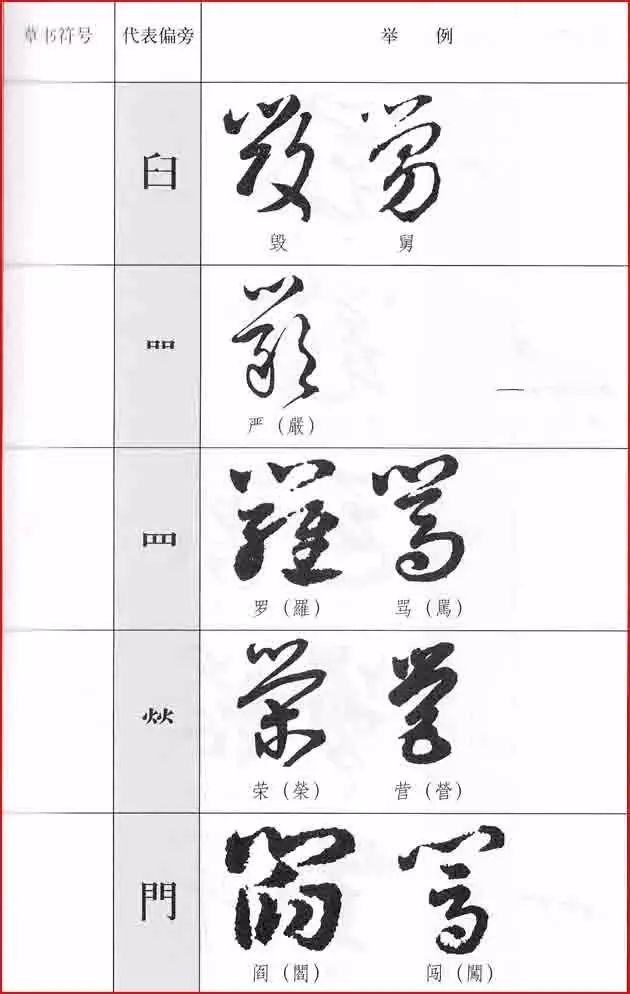 草书符号 代表偏旁 举例
臼
毁 舅
吅
严（嚴）
罒
罗（羅） 骂（罵）
𤇾
荣（榮） 营（營）
門
阎（閻） 闯（闖）